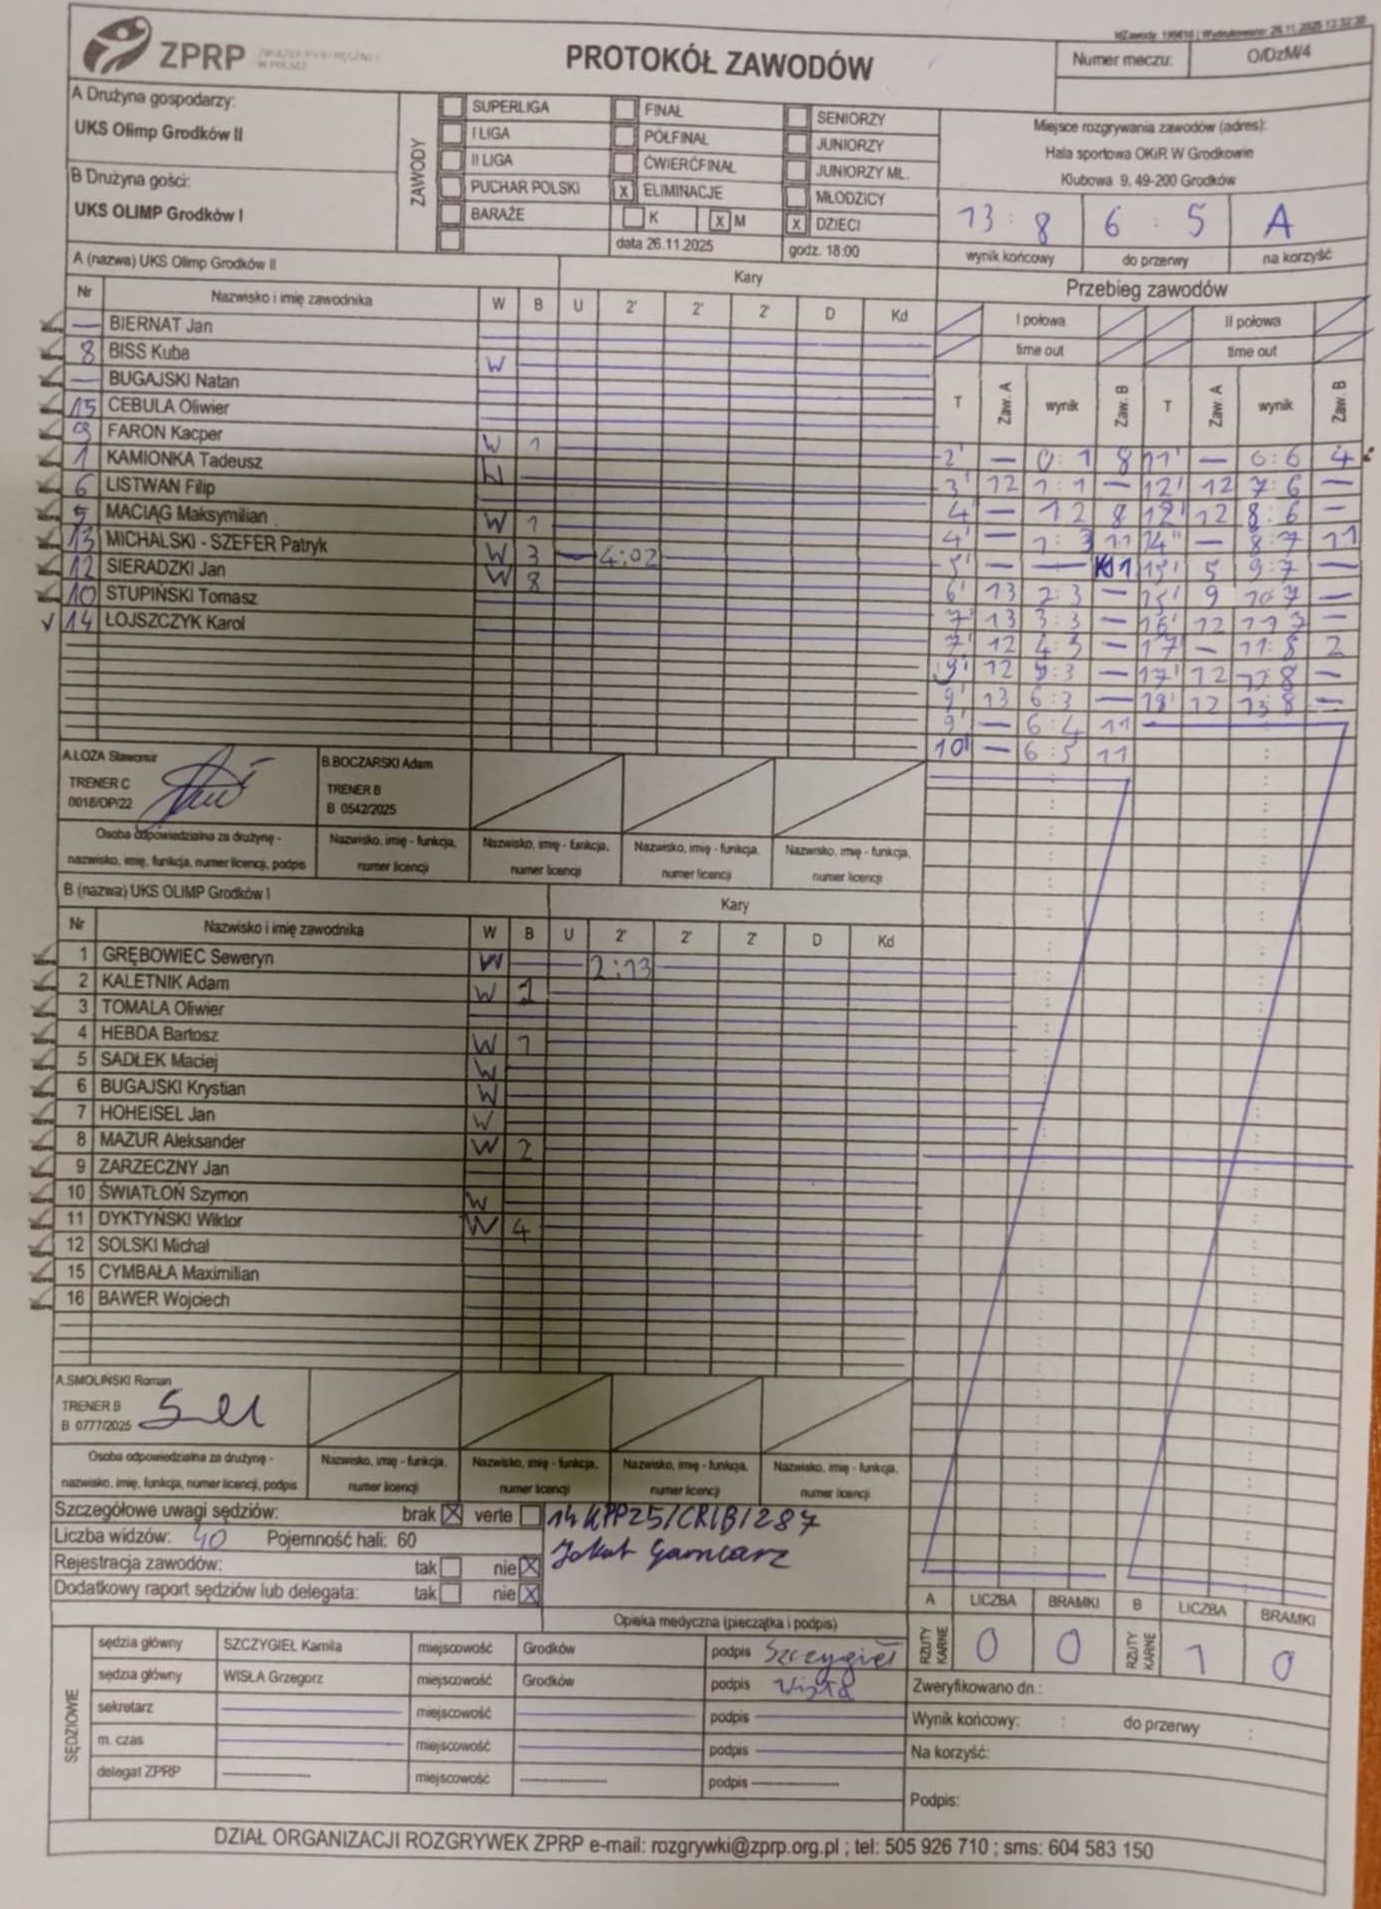 IdZawody: 199616 | Wydrukowano: 26.11.2025 13:32:20
ZPRP ZWIĄZEK PIŁKI RĘCZNEJ W POLSCE
PROTOKÓŁ ZAWODÓW
Numer meczu: O/DzM/4
A Drużyna gospodarzy:
UKS Olimp Grodków II
B Drużyna gości:
UKS OLIMP Grodków I
ZAWODY
SUPERLIGA FINAŁ SENIORZY
I LIGA PÓŁFINAŁ JUNIORZY
II LIGA ĆWIERĆFINAŁ JUNIORZY MŁ.
PUCHAR POLSKI x ELIMINACJE MŁODZICY
BARAŻE K x M x DZIECI
data 26.11.2025 godz. 18:00
Miejsce rozgrywania zawodów (adres):
Hala sportowa OKiR W Grodkowie
Klubowa 9, 49-200 Grodków
13 : 8 6 : 5 A
wynik końcowy do przerwy na korzyść
A (nazwa) UKS Olimp Grodków II Kary
Nr Nazwisko i imię zawodnika W B U 2' 2' 2' D Kd
— BIERNAT Jan
8 BISS Kuba W
— BUGAJSKI Natan
15 CEBULA Oliwier
9 FARON Kacper W 1
1 KAMIONKA Tadeusz W
6 LISTWAN Filip
5 MACIĄG Maksymilian W 1
13 MICHALSKI - SZEFER Patryk W 3 — 4:02
12 SIERADZKI Jan W 8
10 STUPIŃSKI Tomasz
14 ŁOJSZCZYK Karol
Przebieg zawodów
I połowa II połowa
time out time out
T Zaw. A wynik Zaw. B T Zaw. A wynik Zaw. B
2' — 0:1 8 11' — 6:6 4
3' 12 1:1 — 12' 12 7:6 —
4' — 1 2 8 12' 12 8:6 —
4' — 1:3 11 14' — 8:7 11
5' — — K1 15' 5 9:7 —
6' 13 2:3 — 15' 9 10:7 —
7' 13 3:3 — 16' 12 11 7 —
7' 12 4:3 — 17' — 11:8 2
9' 12 5:3 — 17' 12 12 8 —
9' 13 6:3 — 19' 12 13 8 —
9' — 6:4 11
10' — 6:5 11
A.ŁOZA Sławomir
TRENER C
0016/OP/22
B.BOCZARSKI Adam
TRENER B
B 0542/2025
Osoba odpowiedzialna za drużynę - nazwisko, imię, funkcja, numer licencji, podpis
Nazwisko, imię - funkcja, numer licencji
Nazwisko, imię - funkcja, numer licencji
Nazwisko, imię - funkcja, numer licencji
Nazwisko, imię - funkcja, numer licencji
B (nazwa) UKS OLIMP Grodków I Kary
Nr Nazwisko i imię zawodnika W B U 2' 2' 2' D Kd
1 GRĘBOWIEC Seweryn W 2:13
2 KALETNIK Adam W 1
3 TOMALA Oliwier
4 HEBDA Bartosz W 1
5 SADŁEK Maciej W
6 BUGAJSKI Krystian W
7 HOHEISEL Jan W
8 MAZUR Aleksander W 2
9 ZARZECZNY Jan
10 ŚWIATŁOŃ Szymon W
11 DYKTYŃSKI Wiktor W 4
12 SOLSKI Michał
15 CYMBAŁA Maximilian
16 BAWER Wojciech
A.SMOLIŃSKI Roman
TRENER B
B 0777/2025
Osoba odpowiedzialna za drużynę - nazwisko, imię, funkcja, numer licencji, podpis
Nazwisko, imię - funkcja, numer licencji
Nazwisko, imię - funkcja, numer licencji
Nazwisko, imię - funkcja, numer licencji
Nazwisko, imię - funkcja, numer licencji
Szczegółowe uwagi sędziów: brak X verte
Liczba widzów: 40 Pojemność hali: 60
Rejestracja zawodów: tak nie X
Dodatkowy raport sędziów lub delegata: tak nie X
14 KPP25/CR/B/287
Jakub Garncarz
Opieka medyczna (pieczątka i podpis)
SĘDZIOWIE
sędzia główny SZCZYGIEŁ Kamila miejscowość Grodków podpis Szczygieł
sędzia główny WISŁA Grzegorz miejscowość Grodków podpis Wisła
sekretarz miejscowość podpis
m. czas miejscowość podpis
delegat ZPRP miejscowość podpis
A LICZBA BRAMKI B LICZBA BRAMKI
RZUTY KARNE 0 0 RZUTY KARNE 1 0
Zweryfikowano dn.:
Wynik końcowy: : do przerwy :
Na korzyść:
Podpis:
DZIAŁ ORGANIZACJI ROZGRYWEK ZPRP e-mail: rozgrywki@zprp.org.pl ; tel: 505 926 710 ; sms: 604 583 150